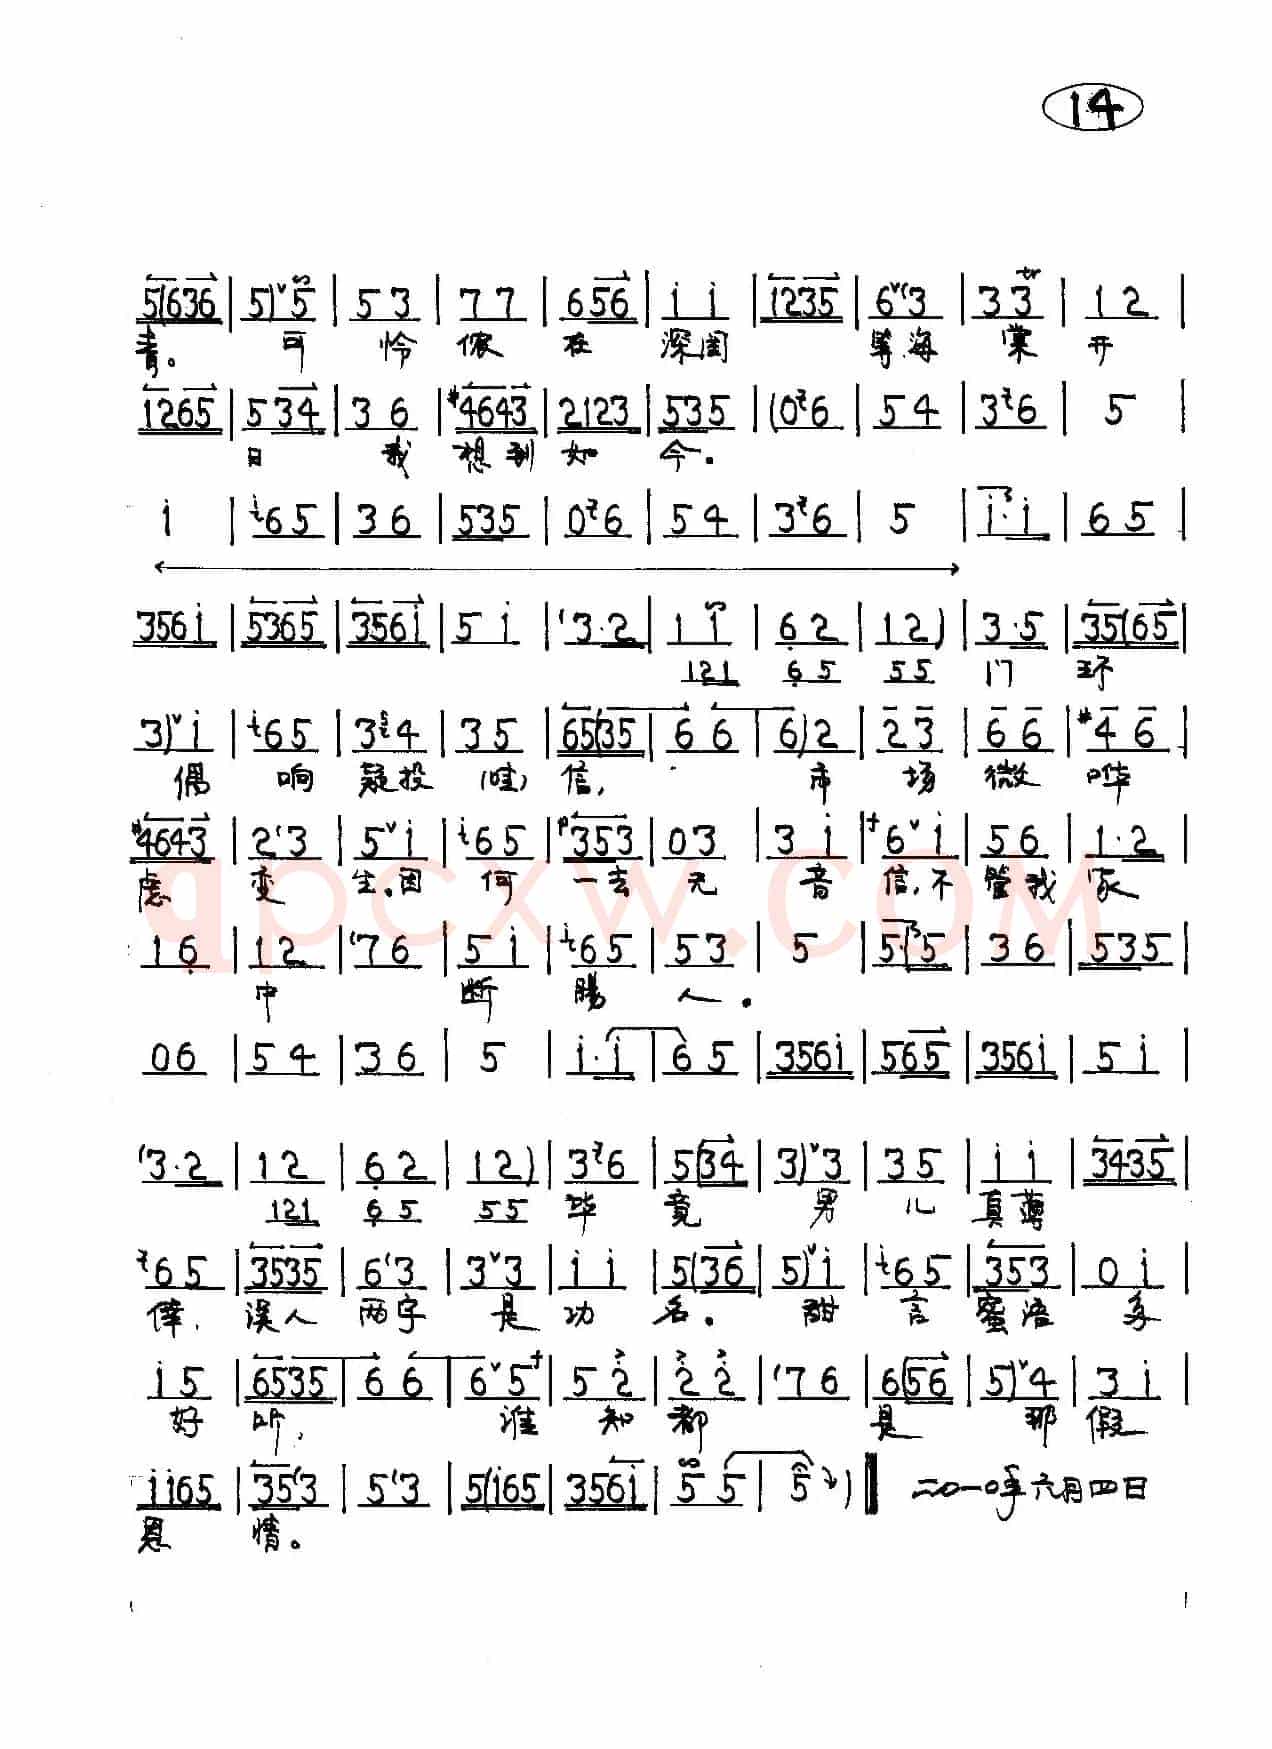 14
5(636 | 5)5 | 53 | 77 | 656 | i i | 1235 | 6(3 | 33 | 12 |
青。 可 怜 侬 在 深闺 等海 棠 开
1265 | 534 | 36 | #4643 | 2123 | 535 | (06 | 54 | 36 | 5 |
日 我 想到 如 今.
i | 65 | 36 | 535 | 06 | 54 | 36 | 5 | i·i | 65 |
356i | 5365 | 356i | 5i | 3·2 | 1i | 62 | 12) | 3·5 | 35(65 |
121 65 55 门 环
3)i | 65 | 34 | 35 | 65(35 | 66 | 6)2 | 23 | 66 | #46 |
偶 响 疑投 (哇) 信, 市 场 微 哗
#4643 | 23 | 5i | 65 | 353 | 03 | 3i | 6i | 56 | 1·2 |
虑 变 生.因 何 一去 无 音 信,不 管我 家
16 | 12 | 76 | 5i | 65 | 53 | 5 | 5·5 | 36 | 535 |
中 断 腸 人.
06 | 54 | 36 | 5 | i·i | 65 | 356i | 565 | 356i | 5i |
3·2 | 12 | 62 | 12) | 36 | 5(34 | 3)3 | 35 | ii | 3435 |
121 65 55 毕 竟 男 儿 真薄
65 | 3535 | 63 | 33 | ii | 5(36 | 5)i | 65 | 353 | 0i |
倖, 误人 两字 是 功 名. 甜 言 蜜语 多
i5 | 6535 | 66 | 65 | 52 | 22 | 76 | 6(56 | 5)4 | 3i |
好 听, 谁 知 都 是 那 假
ii65 | 35(3 | 53 | 5(i65 | 356i | 55 | 5) 二〇一〇年六月四日
恩 情。
qpcxw.com